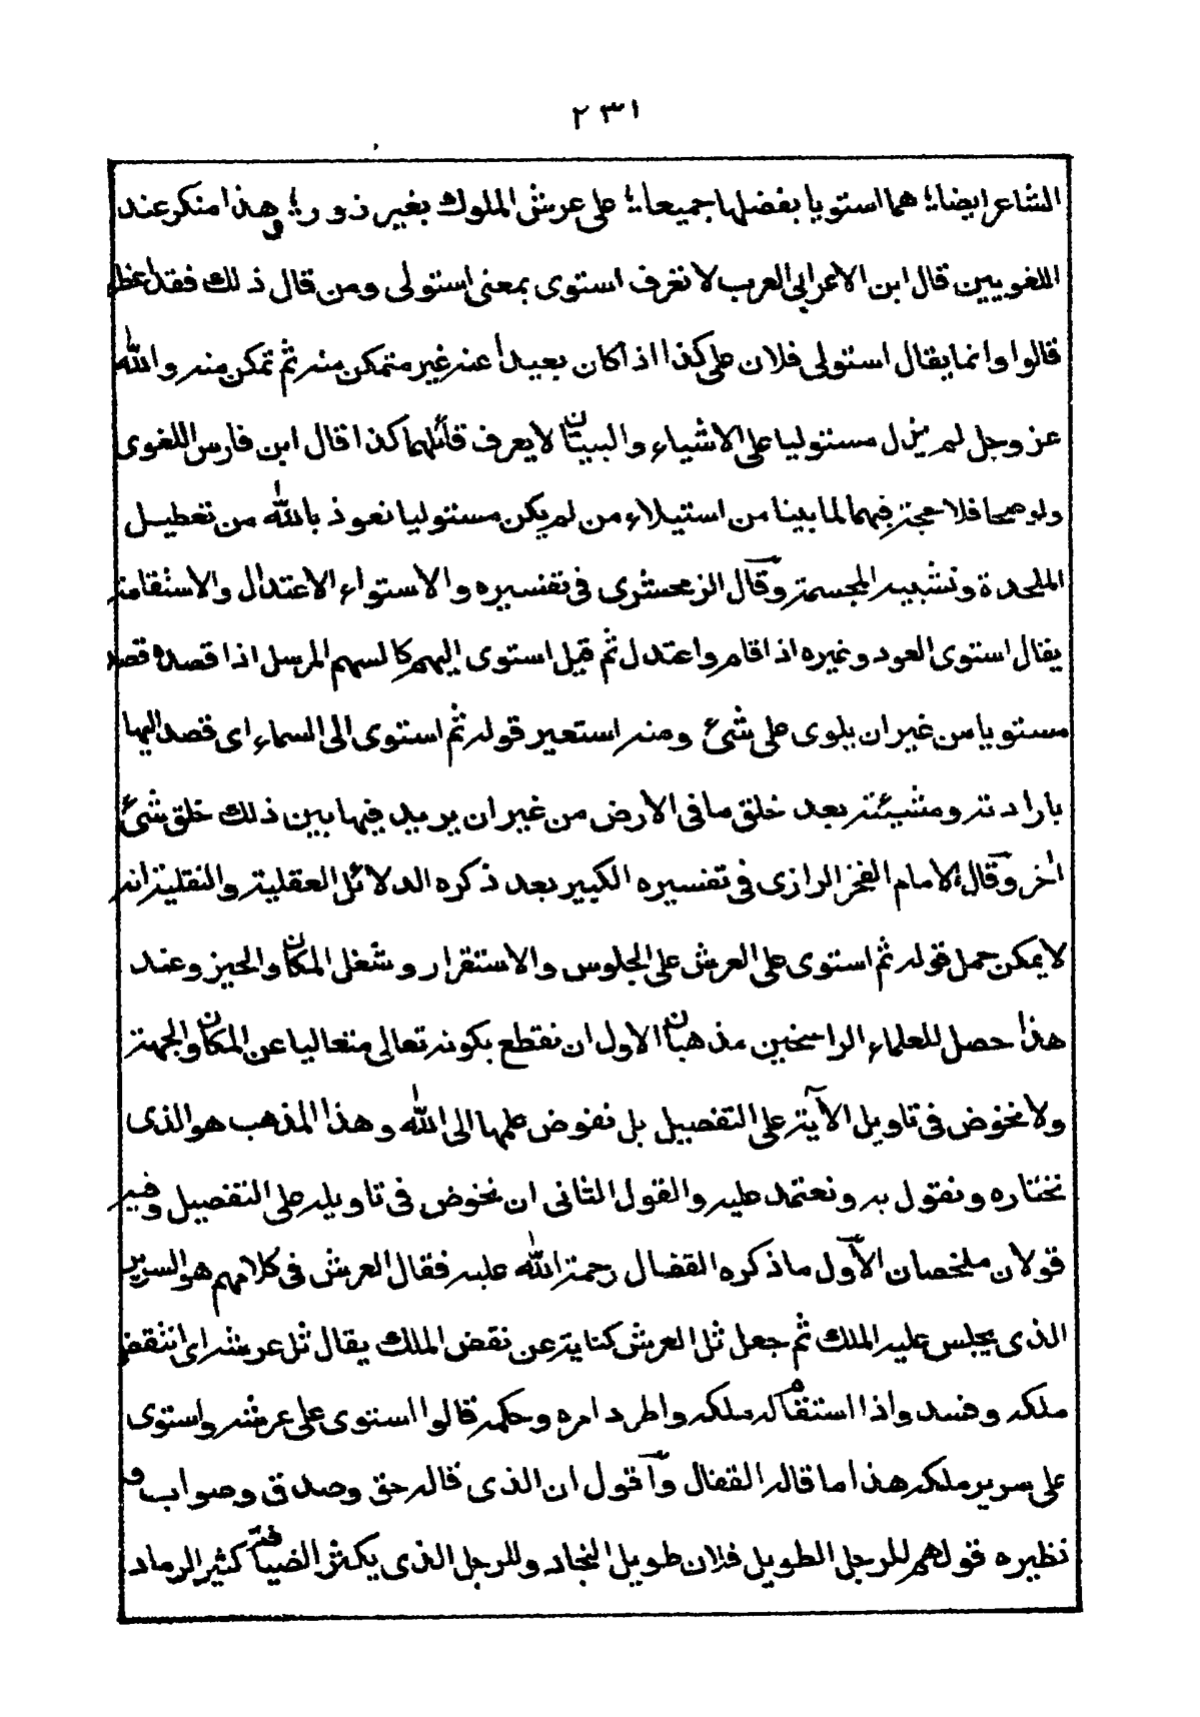 ٢٣١
الشاعر ايضا؛ هما استويا بفضلهما جميعا؛ على عرش الملوك بغير زور؛ وهذا منكر عند
اللغويين قال ابن الاعرابي العرب لا تعرف استوى بمعنى استولى ومن قال ذلك فقد اعظم
قالوا وانما يقال استولى فلان على كذا اذا كان بعيدا عنه غير متمكن منه ثم تمكن منه والله
عز وجل لم يزل مستوليا على الاشياء والبيتان لا يعرف قائلهما كذا قال ابن فارس اللغوى
ولو صحا فلا حجة فيهما لما بينا من استيلاء من لم يكن مستوليا نعوذ بالله من تعطيل
الملحدة وتشبيه المجسمة وقال الزمحشرى فى تفسيره والاستواء الاعتدال والاستقامة
يقال استوى العود وغيره اذا قام واعتدل ثم قيل استوى اليهم كالسهم المرسل اذا قصده قصدا
مستويا من غير ان يلوى على شئ ومنه استعير قوله ثم استوى الى السماء اى قصد اليها
بارادته ومشيئته بعد خلق ما فى الارض من غير ان يريد فيها بين ذلك خلق شئ
اٰخر وقال الامام الفخر الرازى فى تفسيره الكبير بعد ذكره الدلائل العقلية والنقلية انه
لا يمكن حمل قوله ثم استوى على العرش على الجلوس والاستقرار وشغل المكان والحيز وعند
هذا حصل للعلماء الراسخين مذهبان الاول ان نقطع بكونه تعالى متعاليا عن المكان والجهة
ولا نخوض فى تاويل الآية على التفصيل بل نفوض علمها الى الله وهذا المذهب هو الذى
نختاره ونقول به ونعتمد عليه والقول الثانى ان نخوض فى تاويله على التفصيل وفيه
قولان ملخصان الاول ما ذكره القفال رحمة الله عليه فقال العرش فى كلامهم هو السرير
الذى يجلس عليه الملك ثم جعل ثل العرش كناية عن نقض الملك يقال ثل عرشه اى انتقض
ملكه وفسد واذا استقام له ملكه واطرد امره وحكمه قالوا استوى على عرشه واستوى
على سرير ملكه هذا ما قاله القفال واقول ان الذى قاله حق وصدق وصواب و
نظيره قولهم للرجل الطويل فلان طويل النجاد وللرجل الذى يكثر الضيافة كثير الرماد